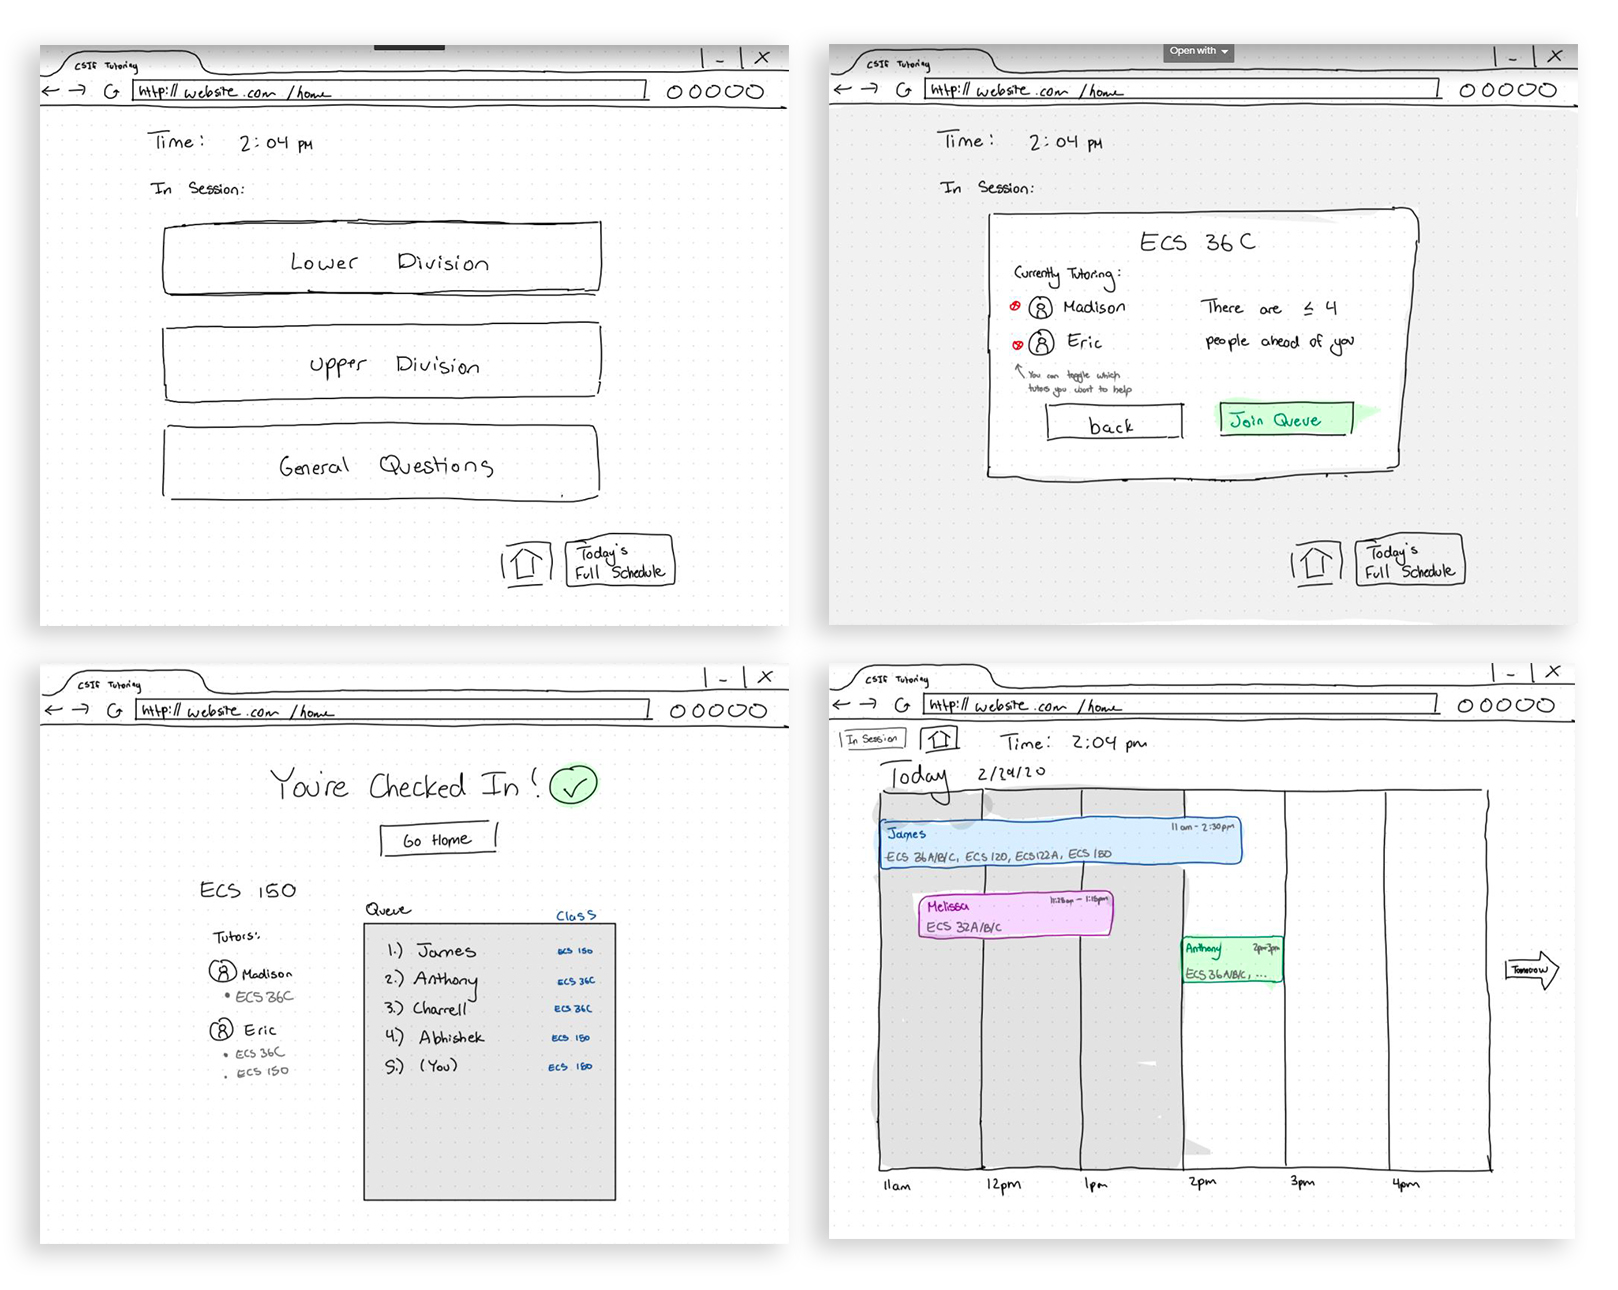 CSIF Tutoring
http:// website.com /home
Time: 2:04 PM
In Session:
Lower Division
Upper Division
General Questions
Today's
Full Schedule
Open with
CSIF Tutoring
http:// website.com /home
Time: 2:04 PM
In Session:
ECS 36C
Currently Tutoring:
Madison
Eric
You can toggle which
tutors you want to help
There are ≤ 4
people ahead of you
back
Join Queue
Today's
Full Schedule
CSIF Tutoring
http:// website.com /home
You're Checked In!
Go Home
ECS 150
Tutors:
Madison
• ECS 36C
Eric
• ECS 36C
• ECS 150
Queue Class
1.) James ECS 150
2.) Anthony ECS 36C
3.) Charrell ECS 36C
4.) Abhishek ECS 150
5.) (You) ECS 150
CSIF Tutoring
http:// website.com /home
In Session
Time: 2:04 pm
Today 2/29/20
James 11am - 2:30pm
ECS 36A/B/C, ECS 120, ECS122A, ECS 150
Melissa
ECS 32A/B/C
Anthony 2pm-3pm
ECS 36A/B/C, ...
Tomorrow
11am 12pm 1pm 2pm 3pm 4pm